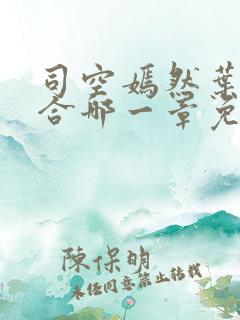 司空嫣然葉
合哪一章免
陳保明
未经同意禁止转载